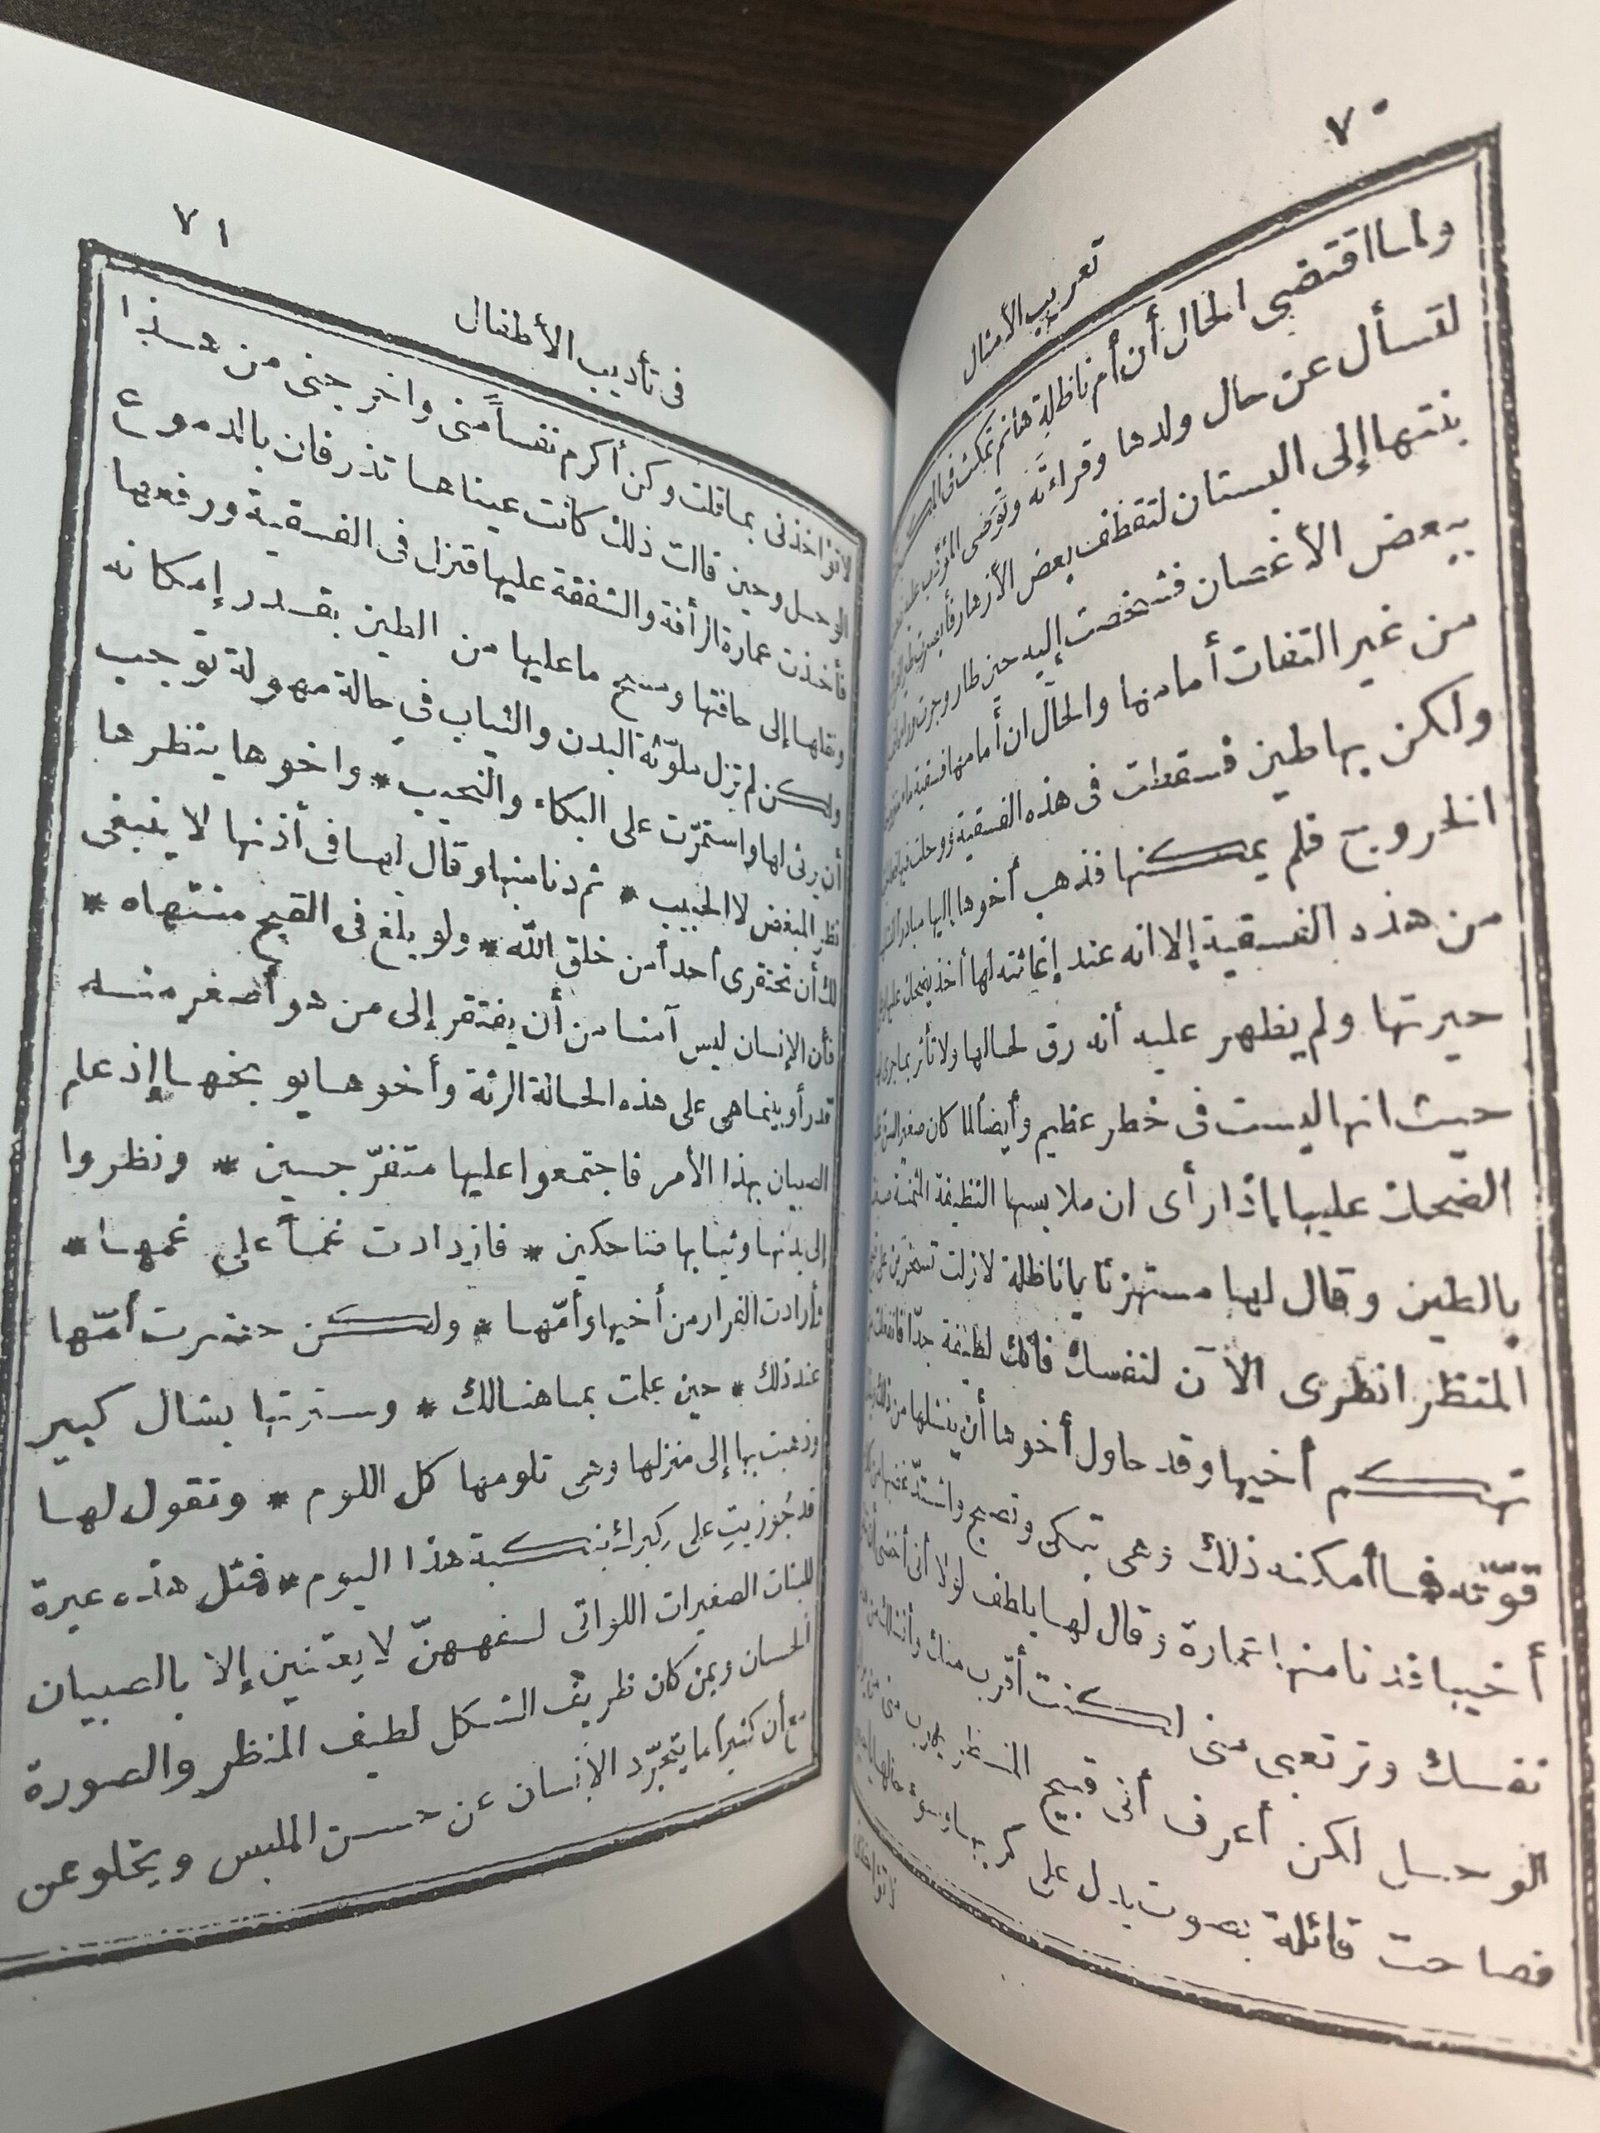 ٧٠
تعريب الأمثال
ولما اقتضى الحال أن أم ناظلة هانم تمكث في
لتسأل عن حال ولدها وقراءته وتوصى المؤدب عليه
بنتها إلى البستان لتقطف بعض الأزهار فأبصرت
ببعض الأغصان فشخصت إليه حين طار وجرت وراءه
من غير التفات أمامها والحال ان أمامها فسقية
ولكن بها طين فسقطت فى هذه الفسقية ووحلت فيها
الخروج فلم يمكنها فذهب أخوها إليها مبادرا
من هذه الفسقية إلا انه عند إغاثته لها أخذ يضحك عليها
حيرتها ولم يظهر عليه أنه رق لحالها ولا تأثر بما جرى
حيث انها ليست فى خطر عظيم وأيضا لما كان صغير السن
الضحك عليها لماذا رأى ان ملابسها النظيفة الثمينة
بالطين وقال لها مستهزئا يا ناظلة لازلت تسخرين
المنظر انظرى الآن لنفسك فانك لطيفة جدا
تهكم أخيها وقد حاول أخوها أن ينشلها من ذلك
قوّته فما أمكنه ذلك وهى تبكى وتصيح واشتدّ غضبها
أخيها فدنا منها عمارة وقال لها بلطف لولا أنى أخشى
نفسك وترتعبى منى لكنت أقرب منك وأنشلك
الوحل لكن أعرف أنى قبيح المنظر يهرب منى
فصاحت قائلة بصوت يدل على كربها وسوء حالها
لا تؤاخذنى
٧١
فى تأديب الأطفال
لا تؤاخذنى بما قلت وكن أكرم نفساً منى واخرجنى من هـذا
الوحل وحين قالت ذلك كانت عيناها تذرفان بالدموع
فأخذت عمارة الرأفة والشفقة عليها فنزل فى الفسقية ورفعها
ونقلها إلى حافتها ومسح ما عليها من الطين بقدر إمكانه
ولكن لم تزل ملوّثة البدن والثياب فى حالة مهولة توجب
أن يرثى لها واستمرّت على البكاء والنحيب * واخوها ينظرها
نظر المبغض لا الحبيب * ثم دنا منها وقال لها فى أذنها لا ينبغى
لك أن تحتقرى أحدا من خلق الله * ولو بلغ فى القبح منتهاه *
فأن الإنسان ليس آمنا من أن يفتقر إلى من هو أصغر منه
قدرا وبينما هى على هذه الحالة الرثة وأخوها يوبخها إذ علم
الصبيان بهذا الأمر فاجتمعوا عليها متفرّجين * ونظروا
إلى بدنها وثيابها ضاحكين * فازدادت غماً على غمها *
فأرادت الفرار من أخيها وأمّها * ولكن حضرت أمّها
عند ذلك * حين علمت بما هنالك * وسترتها بشال كبير
وذهبت بها إلى منزلها وهى تلومها كل اللوم * وتقول لها
قد جُوزيتِ على كِبرك بنكبة هذا اليوم * فمثل هذه عبرة
للبنات الصغيرات اللواتى لسفههنّ لا يعتنين إلا بالصبيان
الحسان وبمن كان ظريف الشكل لطيف المنظر والصورة
مع أن كثيرا ما يتجرّد الإنسان عن حسن الملبس ويخلو عن